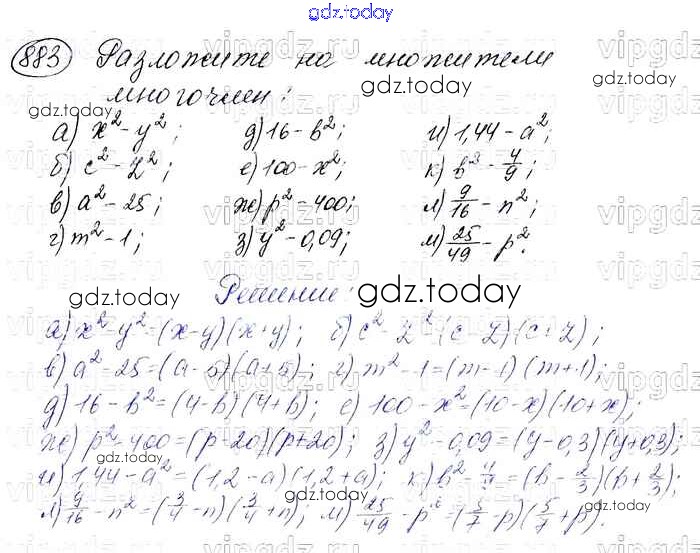 gdz.today
883 Разложите на множители
многочлен:
а) x² - y²; д) 16 - b²; и) 1,44 - a²;
б) c² - z²; е) 100 - x²; к) b² - 4/9;
в) a² - 25; ж) p² - 400; л) 9/16 - n²;
г) m² - 1; з) y² - 0,09; м) 25/49 - p².
Решение: gdz.today
а) x² - y² = (x - y)(x + y); б) c² - z² = (c - z)(c + z);
в) a² - 25 = (a - 5)(a + 5); г) m² - 1 = (m - 1)(m + 1);
д) 16 - b² = (4 - b)(4 + b); е) 100 - x² = (10 - x)(10 + x);
ж) p² - 400 = (p - 20)(p + 20); з) y² - 0,09 = (y - 0,3)(y + 0,3);
и) 1,44 - a² = (1,2 - a)(1,2 + a); к) b² - 4/9 = (b - 2/3)(b + 2/3);
л) 9/16 - n² = (3/4 - n)(3/4 + n); м) 25/49 - p² = (5/7 - p)(5/7 + p).